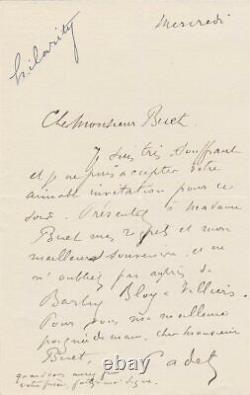 hilarity
Mercredi
Cher Monsieur Buet.
Je suis très souffrant
et je ne puis accepter votre
aimable invitation pour ce
soir. Présentez à Madame
Buet mes et mon
meilleur souvenir, et ne
m'oubliez pas auprès de
Barbey Bloy & Villiers.
Pour vous ma meilleure
poignée de main, cher Monsieur
Buet, Cadet
quand vous